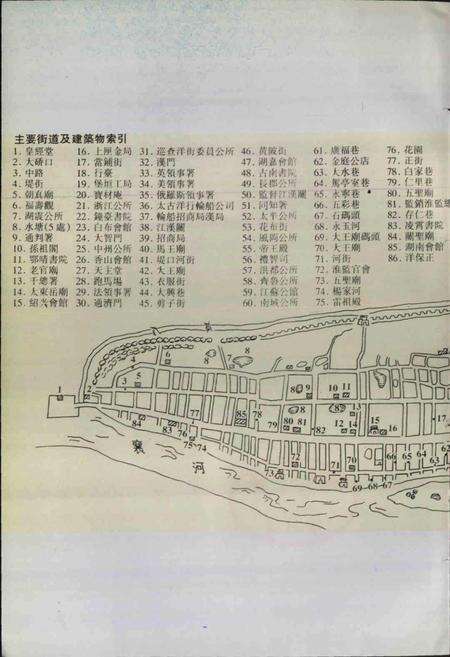 主要街道及建築物索引
1. 皇經堂
2. 大硚口
3. 中路
4. 堤街
5. 朝真廟
6. 福壽觀
7. 湖襄公所
8. 水塘(5處)
9. 通判署
10. 孫祖閣
11. 鄂晴書院
12. 老官廟
13. 千總署
14. 大東岳廟
15. 紹興會館
16. 上厘金局
17. 當鋪街
18. 行臺
19. 堡垣工局
20. 寶林庵
21. 浙江公所
22. 鐘臺書院
23. 白布會館
24. 大智門
25. 中州公所
26. 香山會館
27. 天主堂
28. 跑馬場
29. 法領事署
30. 通濟門
31. 巡查洋街委員公所
32. 漢門
33. 英領事署
34. 美領事署
35. 俄羅斯領事署
36. 太古洋行輪船公司
37. 輪船招商局漢局
38. 江漢關
39. 招商局
40. 馬王廟
41. 堤口河街
42. 大王廟
43. 衣服街
44. 大興巷
45. 剪子街
46. 黃陂街
47. 湖嘉會館
48. 古南書院
49. 長郡公所
50. 監督江漢關
51. 同知署
52. 太平公所
53. 花布街
54. 風陽公所
55. 帝王殿
56. 禮智司
57. 洪都公所
58. 齊魯公所
59. 江蘇公館
60. 南城公所
61. 廣福巷
62. 金庭公店
63. 大水巷
64. 萬壽宮巷
65. 永寧巷
66. 五彩巷
67. 石碼頭
68. 永玉河
69. 大王廟碼頭
70. 大王廟
71. 河街
72. 淮監官會
73. 五聖廟
74. 楊家河
75. 雷祖殿
76. 花園
77. 正街
78. 白家巷
79. 仁里巷
80. 五聖廟
81. 監銷淮監
82. 存仁巷
83. 凌霄書院
84. 關聖廟
85. 湖南會館
86. 洋保正
襄河